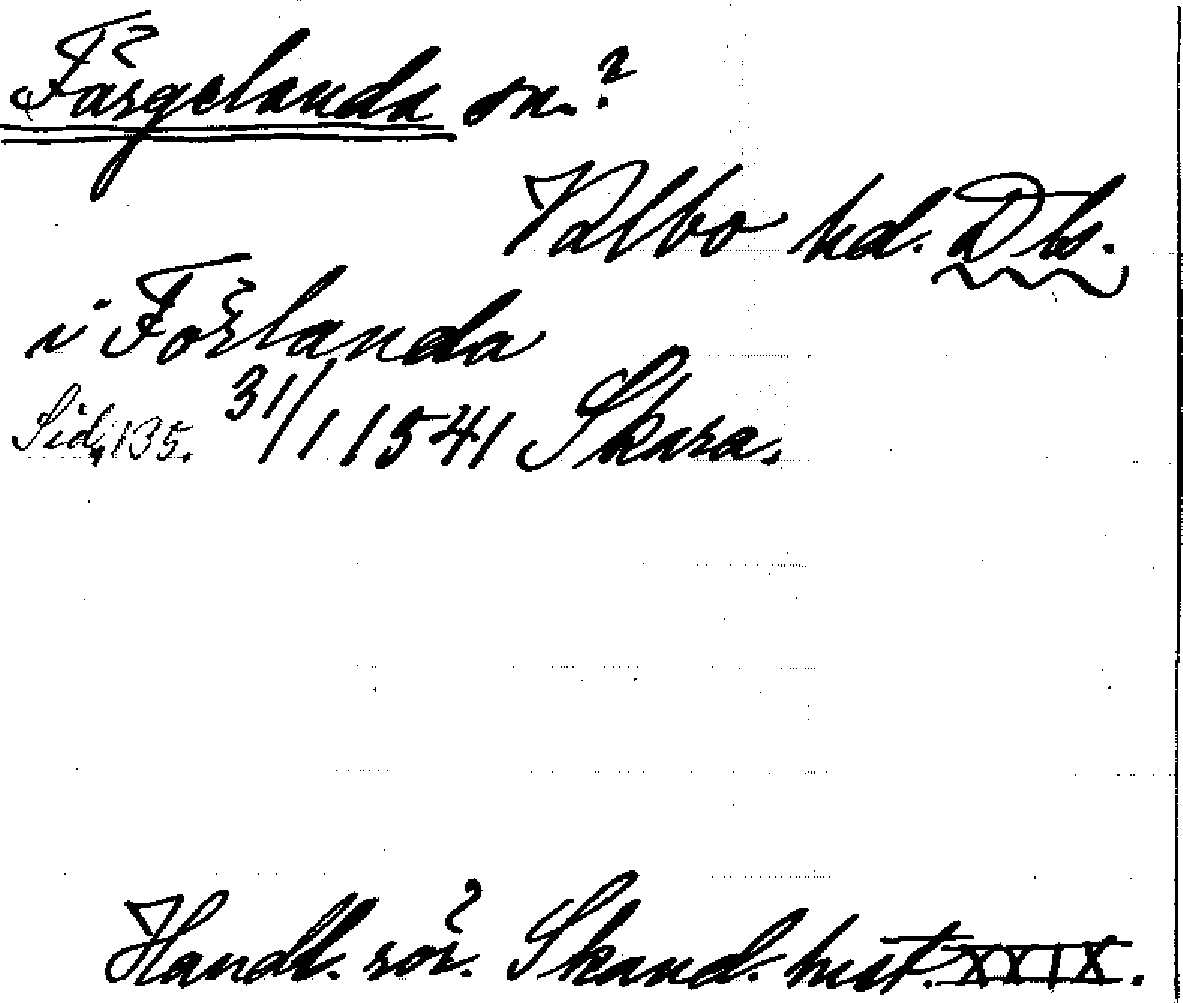 Färgelanda sn.?
Valbo hd. Dls.
i Förlanda
Sid. 135. 31/1 1541 Skara.
Handl. rör. Skand. hist. XXIX.